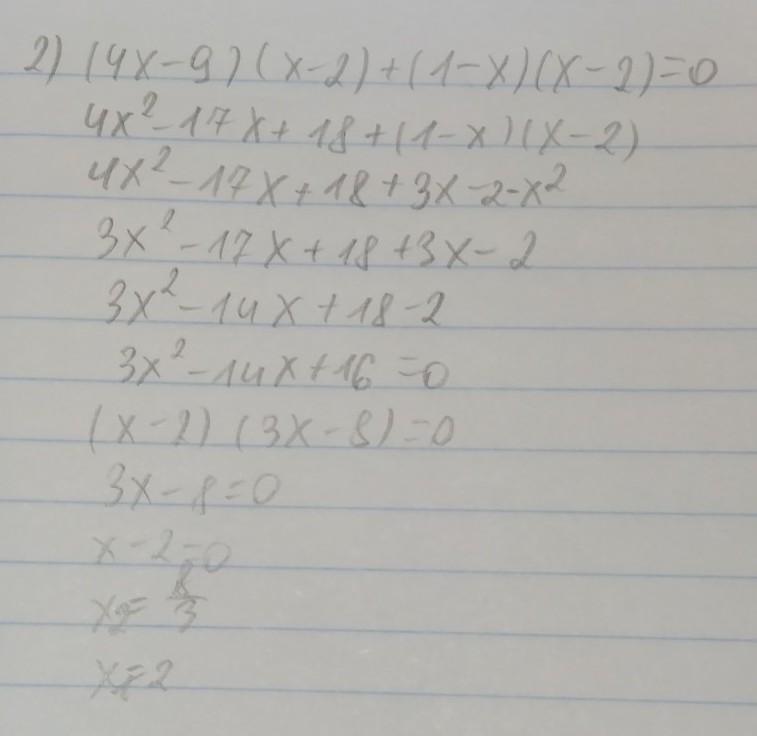 2) (4x-9)(x-2)+(1-x)(x-2)=0
4x²-17x+18+(1-x)(x-2)
4x²-17x+18+3x-2-x²
3x²-17x+18+3x-2
3x²-14x+18-2
3x²-14x+16=0
(x-2)(3x-8)=0
3x-8=0
x-2=0
x₂=8/3
x₁=2